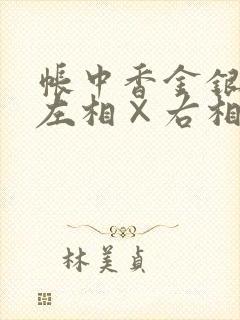 帳中香金銀
左相×右相
林美貞